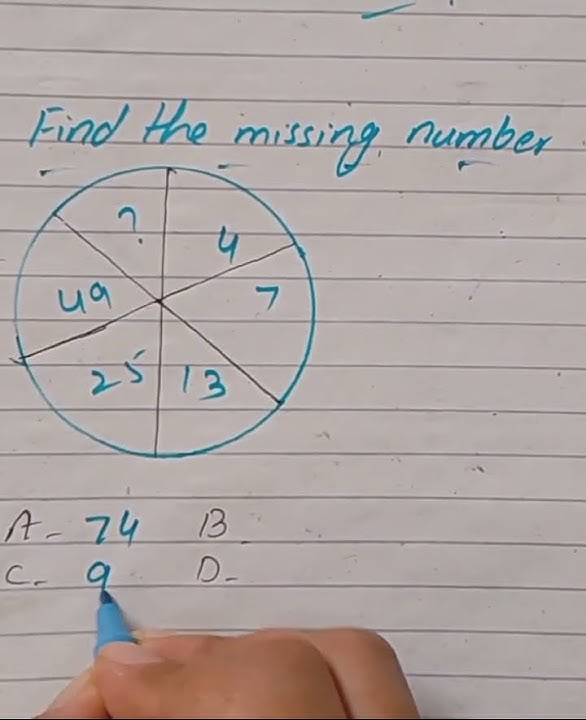 Find the missing number
?
4
49
7
25
13
A- 74 B
C- 9 D-